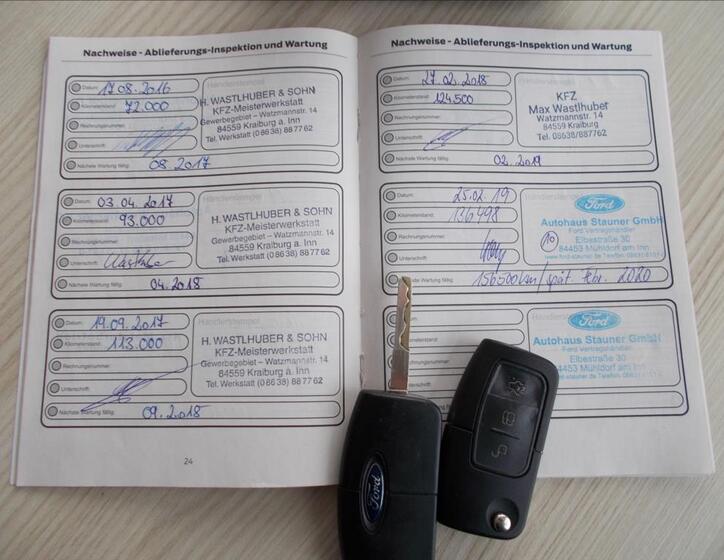 Nachweise - Ablieferungs-Inspektion und Wartung
Datum: 17.08.2016
Kilometerstand: 72.000
Rechnungsnummer:
Unterschrift:
Nächste Wartung fällig: 08.2017
H. WASTLHUBER & SOHN
KFZ-Meisterwerkstatt
Gewerbegebiet – Watzmannstr. 14
84559 Kraiburg a. Inn
Tel. Werkstatt (0 86 38) 88 77 62
Datum: 03.04.2017
Kilometerstand: 93.000
Rechnungsnummer:
Unterschrift:
Nächste Wartung fällig: 04.2018
H. WASTLHUBER & SOHN
KFZ-Meisterwerkstatt
Gewerbegebiet – Watzmannstr. 14
84559 Kraiburg a. Inn
Tel. Werkstatt (0 86 38) 88 77 62
Datum: 19.09.2017
Kilometerstand: 113.000
Rechnungsnummer:
Unterschrift:
Nächste Wartung fällig: 09.2018
Händlerstempel
H. WASTLHUBER & SOHN
KFZ-Meisterwerkstatt
Gewerbegebiet – Watzmannstr. 14
84559 Kraiburg a. Inn
Tel. Werkstatt (0 86 38) 88 77 62
24
Nachweise - Ablieferungs-Inspektion und Wartung
Datum: 27.02.2018
Kilometerstand: 124.500
Rechnungsnummer:
Unterschrift:
Nächste Wartung fällig: 02.2019
Händlerstempel
KFZ
Max Wastlhuber
Watzmannstr. 14
84559 Kraiburg
Tel. 08638/887762
Datum: 25.02.19
Kilometerstand: 136498
Rechnungsnummer:
Unterschrift:
Wartung fällig: 156.500km/spät. Febr. 2020
Ford
Autohaus Stauner GmbH
Ford Vertragshändler
Elbestraße 30
84453 Mühldorf am Inn
10
Händlerstempel
Ford
Autohaus Stauner GmbH
Ford Vertragshändler
Elbestraße 30
84453 Mühldorf am Inn
Ford